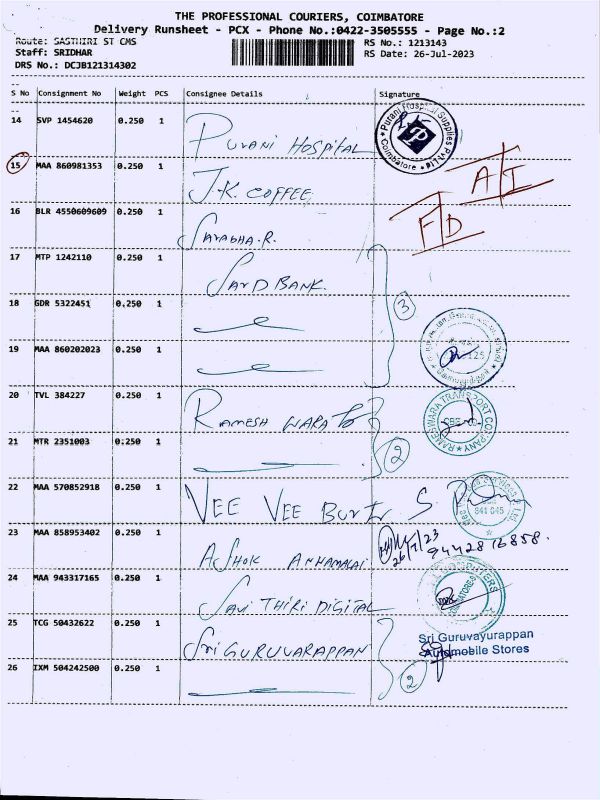 THE PROFESSIONAL COURIERS, COIMBATORE
Delivery Runsheet - PCX - Phone No.:0422-3505555 - Page No.:2
Route: SASTHIRI ST CMS
RS No.: 1213143
Staff: SRIDHAR
RS Date: 26-Jul-2023
DRS No.: DCJB121314302
S No Consignment No Weight PCS Consignee Details Signature
14 SVP 1454620 0.250 1 Purani Hospital
Purani Hospital Supplies Pvt Ltd
Coimbatore
15 MAA 860981353 0.250 1 J.K. COFFEE
A/I
F/D
16 BLR 4550609609 0.250 1
17 MTP 1242110 0.250 1 BANK
18 GDR 5322451 0.250 1
3
19 MAA 860202023 0.250 1
20 TVL 384227 0.250 1 RAMESH WARA
RAMESWARA TRANSPORT COMPANY
21 MTR 2351003 0.250 1
2
22 MAA 570852918 0.250 1 VEE VEE
641 045
23 MAA 858953402 0.250 1 AShok ANNAMALAI
26/7/23
9442816858.
24 MAA 943317165 0.250 1 Savi THIRI DIGITAL
25 TCG 50432622 0.250 1 Sri GURUVARAPPAN
Sri Guruvayurappan
Automobile Stores
26 IXM 504242500 0.250 1
2